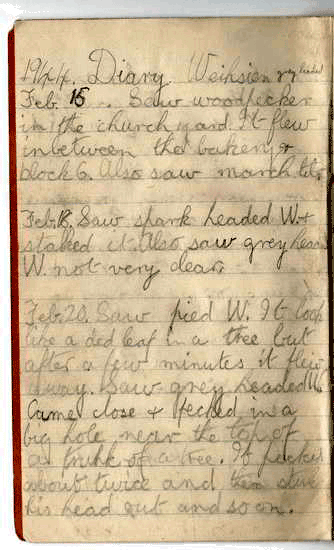 1944. Diary. Weihsien grey headed
Feb. 15. Saw woodpecker
in the church yard. It flew
inbetween the bakery &
block 6. Also saw march tit.
Feb. 18. Saw spark headed W. &
stalked it. Also saw grey head
W. not very clear.
Feb. 20. Saw pied W. It look
like a ded leaf in a tree but
after a few minutes it flew
away. Saw grey headed W.
Came close & pecked in a
big hole near the top of
a trunk of a tree. It pecked
about twice and then
his head out and so on.